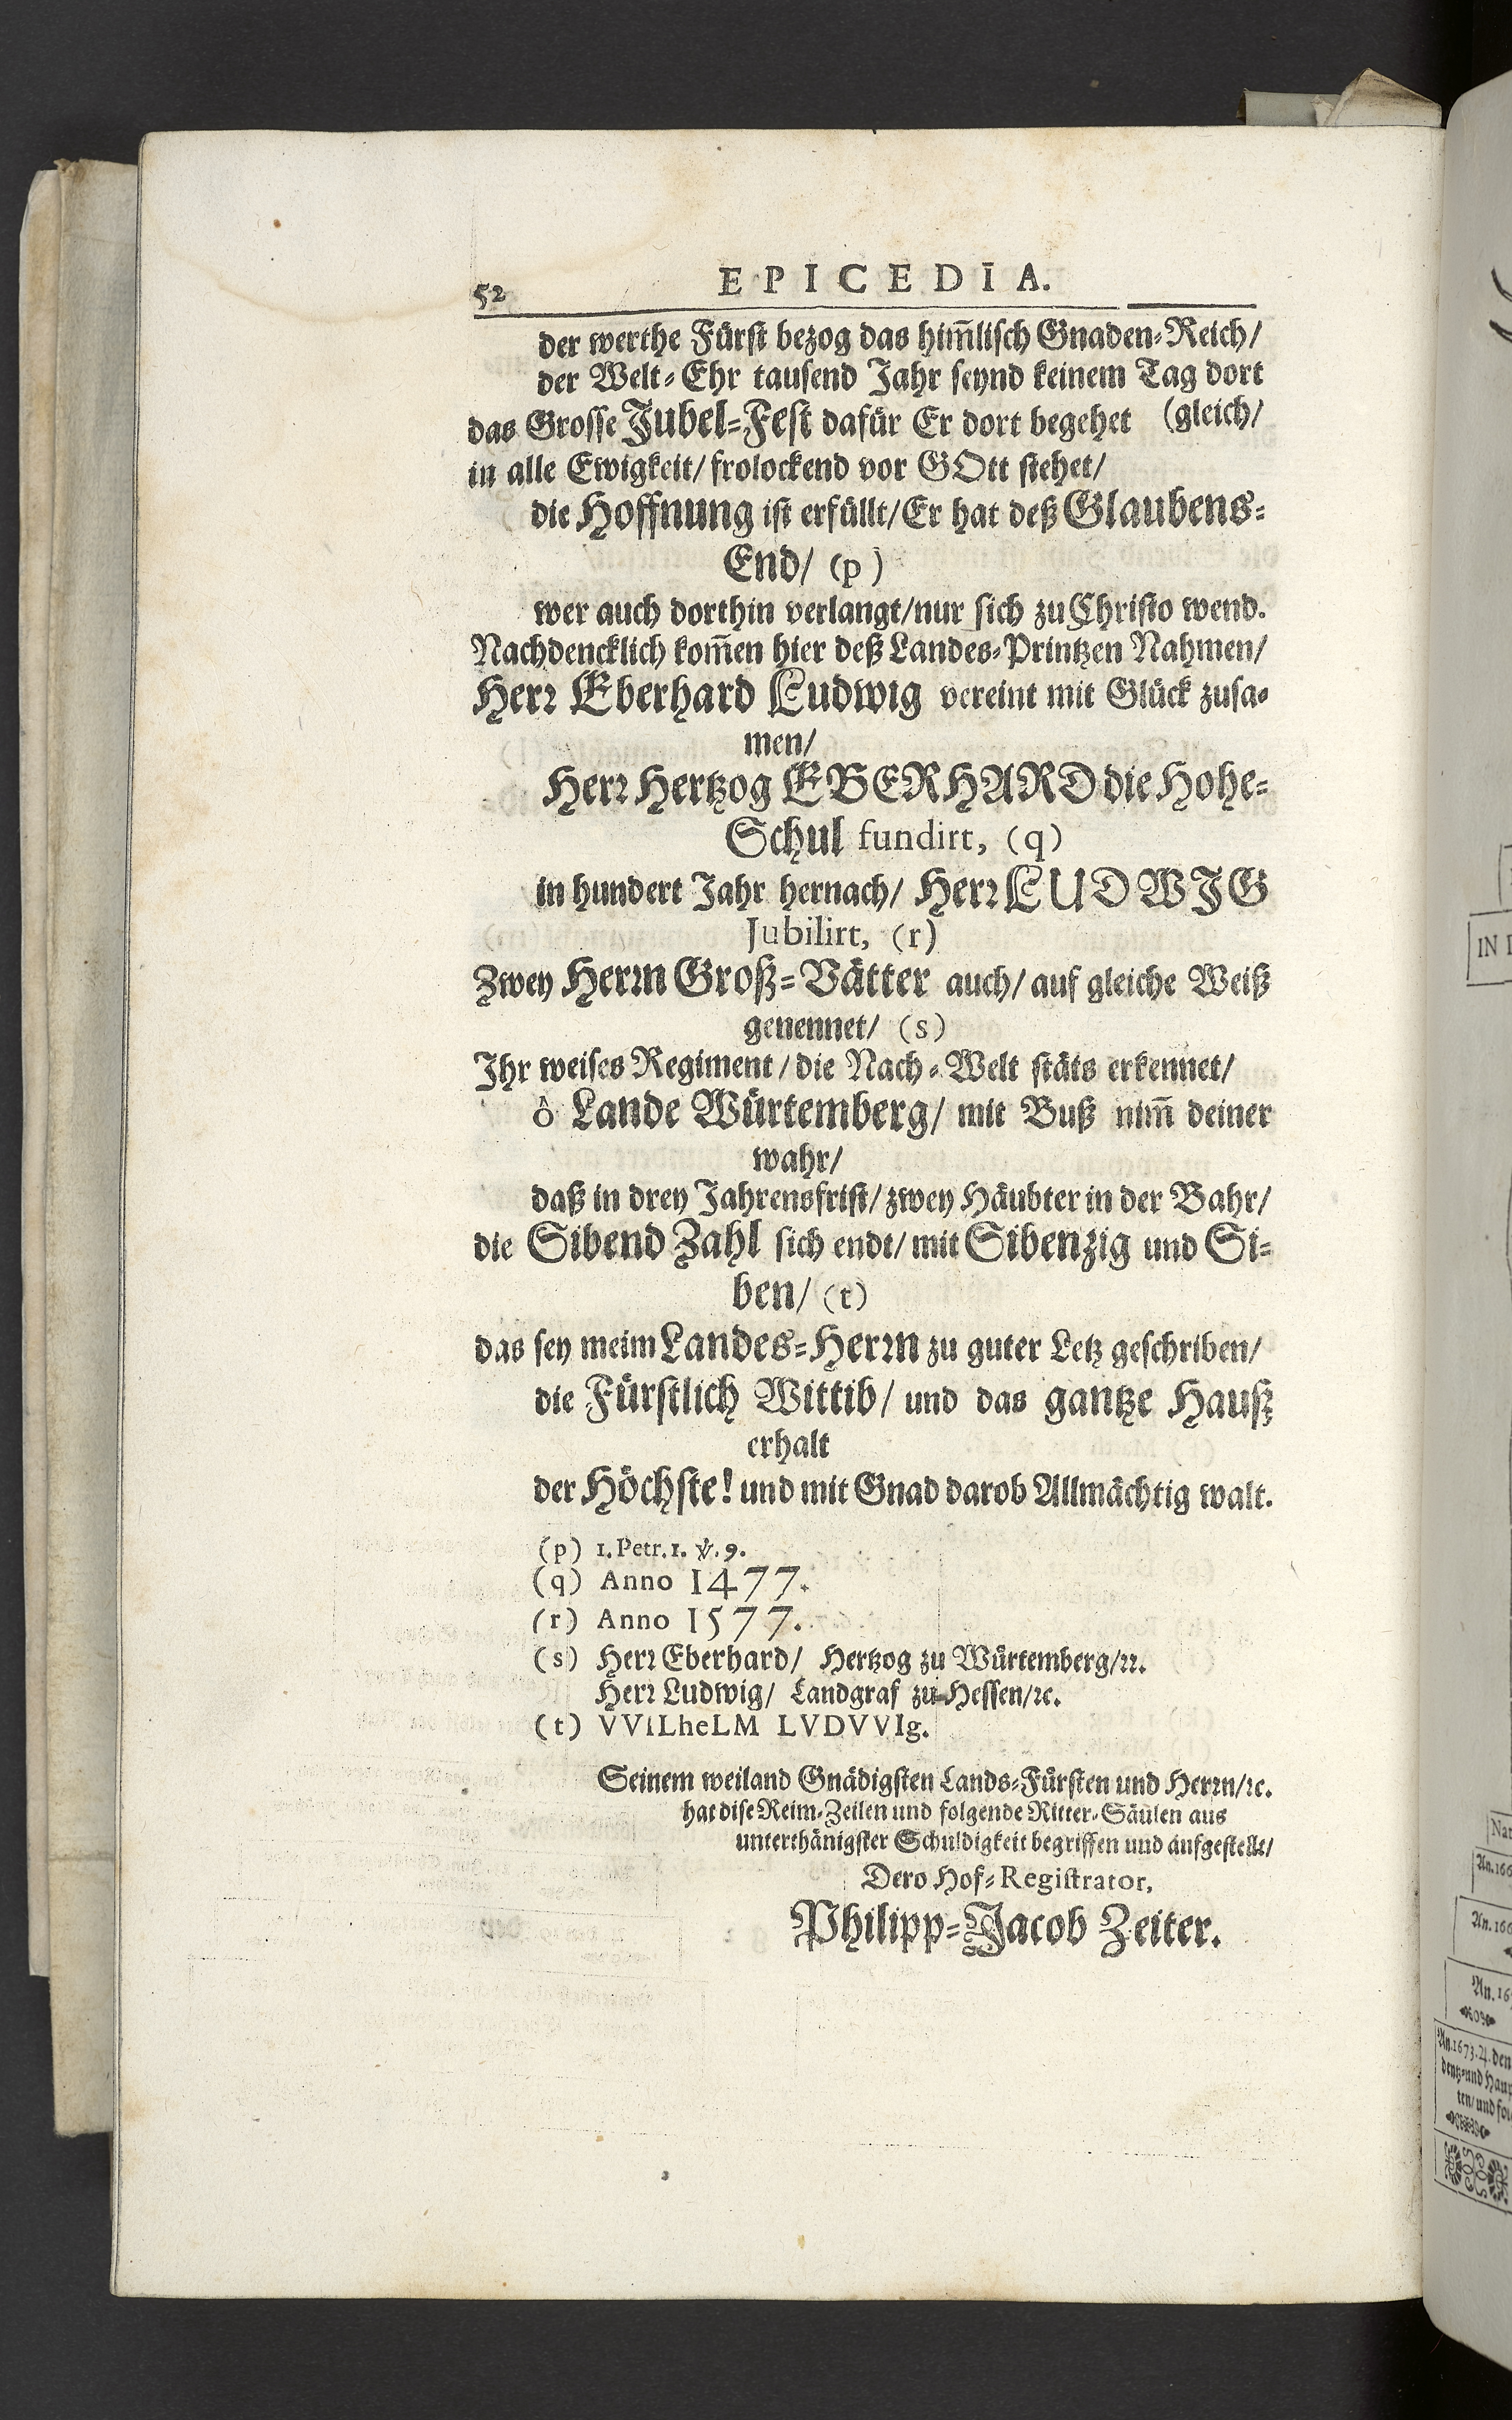 52 EPICEDIA.
der werthe Fürst bezog das him̃lisch Gnaden-Reich/
der Welt-Ehr tausend Jahr seynd keinem Tag dort
das Grosse Jubel-Fest dafür Er dort begehet (gleich/
in alle Ewigkeit/ frolockend vor GOtt stehet/
die Hoffnung ist erfüllt/ Er hat deß Glaubens-
End/ (p)
wer auch dorthin verlangt/ nur sich zu Christo wend.
Nachdencklich kom̃en hier deß Landes-Printzen Nahmen/
Herꝛ Eberhard Ludwig vereint mit Glück zusa-
men/
Herꝛ Hertzog EBERHARD die Hohe-
Schul fundirt, (q)
in hundert Jahr hernach/ Herꝛ LUDWIG
Jubilirt, (r)
Zwey Herꝛn Groß-Vätter auch/ auf gleiche Weiß
genennet/ (s)
Ihr weises Regiment/ die Nach-Welt stäts erkennet/
ô Lande Würtemberg/ mit Buß nim̃ deiner
wahr/
daß in drey Jahrensfrist/ zwey Häubter in der Bahr/
die Sibend Zahl sich endt/ mit Sibenzig und Si-
ben/ (t)
das sey meim Landes-Herꝛn zu guter Letz geschriben/
die Fürstlich Wittib/ und das gantze Hauß
erhalt
der Höchste! und mit Gnad darob Allmächtig walt.
(p) 1. Petr. 1. ℣. 9.
(q) Anno 1477.
(r) Anno 1577.
(s) Herꝛ Eberhard/ Hertzog zu Würtemberg/ꝛꝛ.
Herꝛ Ludwig/ Landgraf zu Hessen/ꝛc.
(t) VViLheLM LVDVVIg.
Seinem weiland Gnädigsten Lands-Fürsten und Herꝛn/ꝛc.
hat dise Reim-Zeilen und folgende Ritter-Säulen aus
unterthänigster Schuldigkeit begriffen und aufgestellt/
Dero Hof-Registrator,
Philipp-Jacob Zeiter.
IN
An. 166
An. 166
An. 16
An. 1673. 4. den